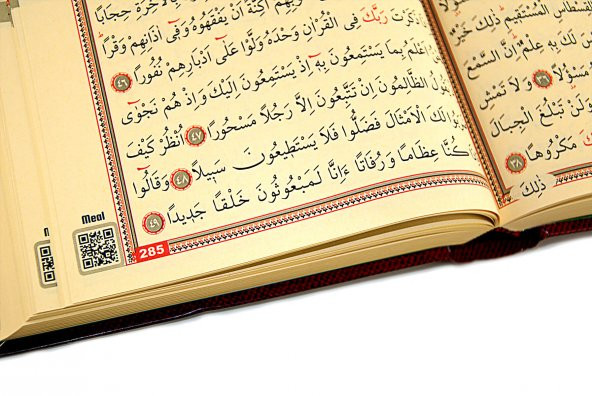 بِالْقِسْطَاسِ الْمُسْتَقِيمِ ذٰلِكَ خَيْرٌ
لَيْسَ لَكَ بِهِ عِلْمٌ اِنَّ السَّمْعَ
مَسْؤُلًا ٣٦ وَلَا تَمْشِ
وَلَنْ تَبْلُغَ الْجِبَالَ
مَكْرُوهًا ٣٨
ذٰلِكَ
بِالْاٰخِرَةِ حِجَابًا
اَكِنَّةً اَنْ يَفْقَهُوهُ وَفِٓي اٰذَانِهِمْ وَقْرًا
ذَكَرْتَ رَبَّكَ فِي الْقُرْاٰنِ وَحْدَهُ وَلَّوْا عَلٰٓى اَدْبَارِهِمْ نُفُورًا ٤٦
اَعْلَمُ بِمَا يَسْتَمِعُونَ بِهِٓ اِذْ يَسْتَمِعُونَ اِلَيْكَ وَاِذْ هُمْ نَجْوٰٓى
يَقُولُ الظَّالِمُونَ اِنْ تَتَّبِعُونَ اِلَّا رَجُلًا مَسْحُورًا ٤٧ اُنْظُرْ كَيْفَ
لَكَ الْاَمْثَالَ فَضَلُّوا فَلَا يَسْتَطِيعُونَ سَبِيلًا ٤٨ وَقَالُٓوا
كُنَّا عِظَامًا وَرُفَاتًا ءَاِنَّا لَمَبْعُوثُونَ خَلْقًا جَدِيدًا ٤٩
285
Meal